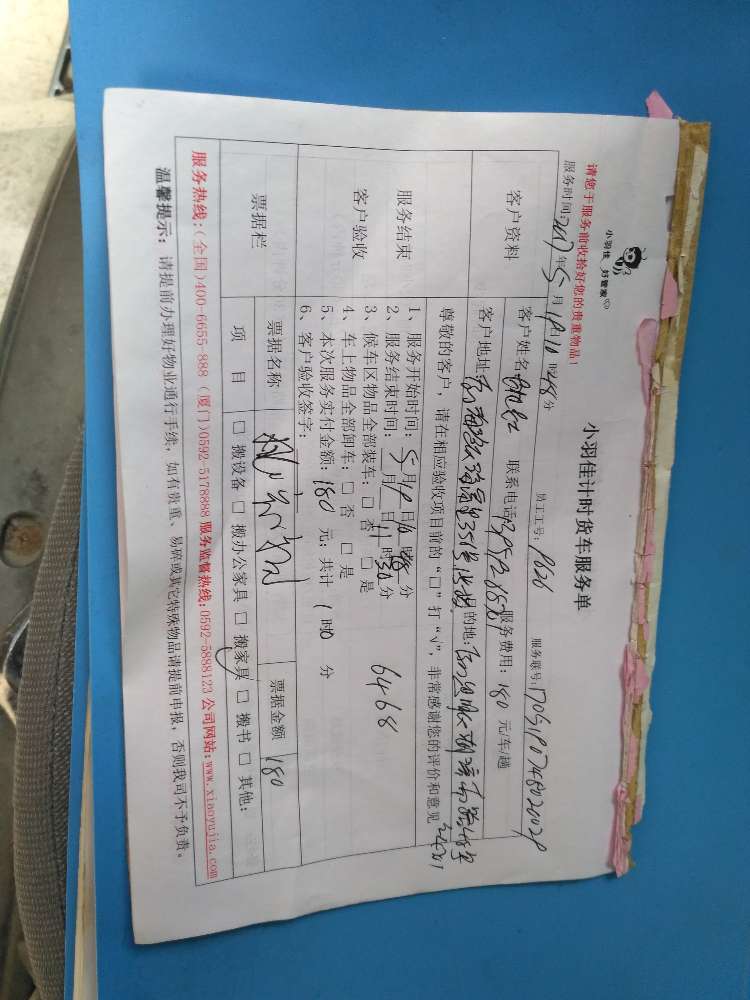 小羽佳 好管家
小羽佳计时货车服务单
请您于服务前收拾好您的贵重物品！
服务时间：2017年5月19日10时48分 员工工号：9626 服务联号：
客户资料
客户姓名： 联系电话： 服务费用：180 元/车/趟
客户地址： 目的地：
服务结束
客户验收
尊敬的客户，请在相应验收项目前的“□”打“√”，非常感谢您的评价和意见
1、服务开始时间：5月19日 时 分
2、服务结束时间： 月 日11时30分
3、候车区物品全部装车：□ 否 □ 是
4、车上物品全部卸车：□ 否 □ 是
5、本次服务实付金额：180 元；共计 1 时 分
6、客户验收签字：
6468
票据栏
票据名称 票据金额 180
项 目 □ 搬设备 □ 搬办公家具 □ 搬家具 □ 搬书 □ 其他：
服务热线：(全国)400-6655-888 (厦门)0592-5178888 服务监督热线：0592-5888123 公司网站：www.xiaoyujia.com
温馨提示：请提前办理好物业通行手续，如有贵重、易碎或其它特殊物品请提前申报，否则我司不予负责。